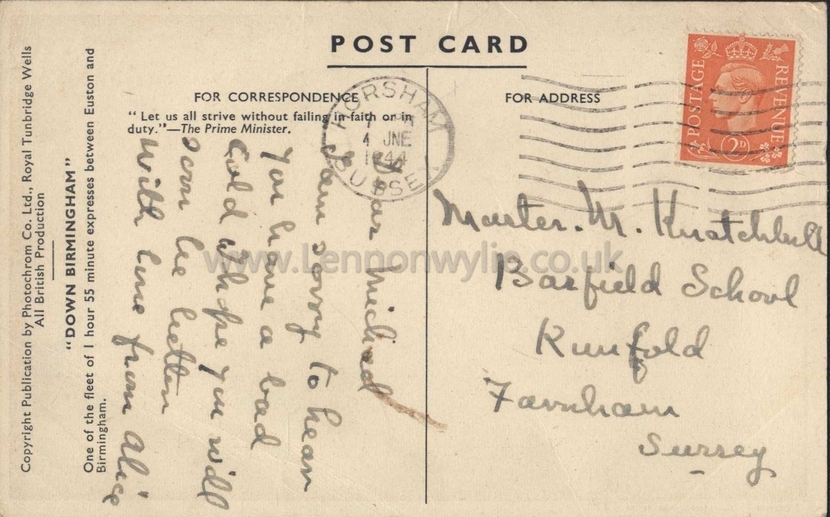 POST CARD
FOR CORRESPONDENCE
"Let us all strive without failing in faith or in
duty."—The Prime Minister.
FOR ADDRESS
HORSHAM
4 JNE
1944
SUSSEX
POSTAGE
REVENUE
2D
Dear Michael
I am sorry to hear
you have a bad
Cold & hope you will
soon be better
with love from Alice
Master. M. Knatchbull
Barfield School
Runfold
Farnham
Surrey
"DOWN BIRMINGHAM"
One of the fleet of 1 hour 55 minute expresses between Euston and
Birmingham.
Copyright Publication by Photochrom Co. Ltd., Royal Tunbridge Wells
All British Production
www.Lennonwylie.co.uk